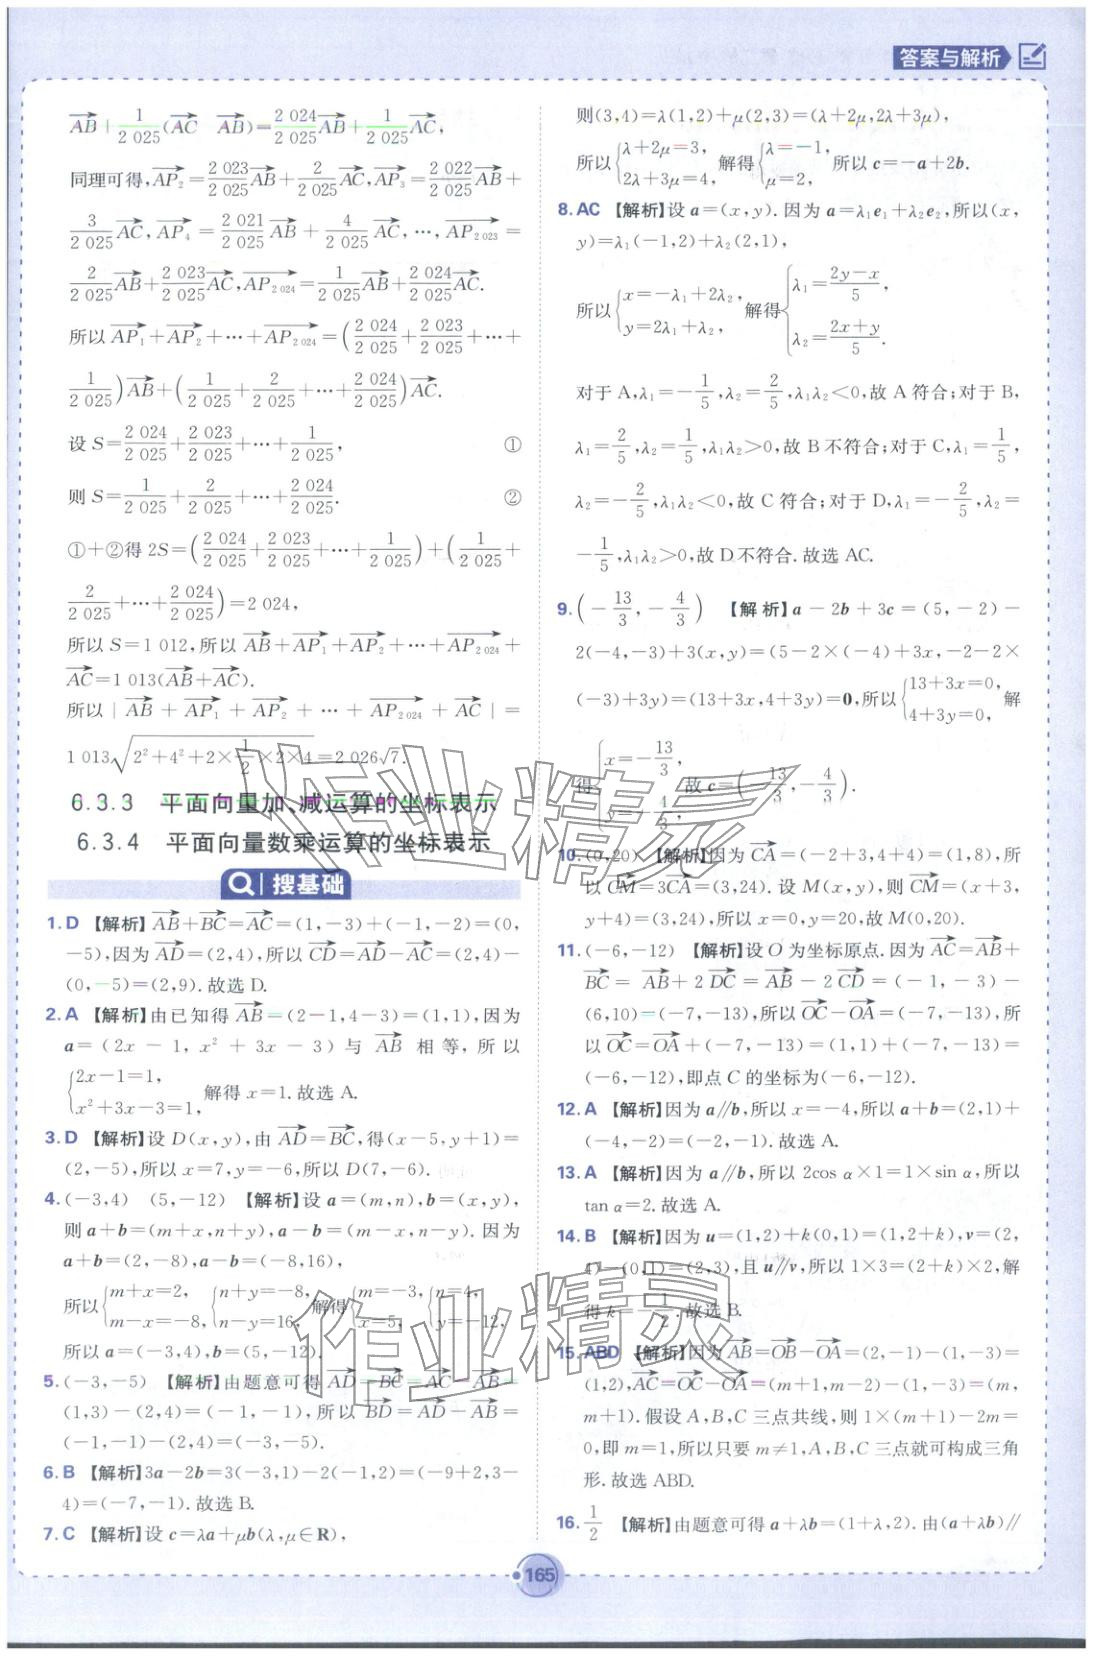 答案与解析
$\overrightarrow{AB}+\frac{1}{2\,025}(\overrightarrow{AC}\quad\overrightarrow{AB})=\frac{2\,024}{2\,025}\overrightarrow{AB}+\frac{1}{2\,025}\overrightarrow{AC}$,
同理可得,$\overrightarrow{AP_2}=\frac{2\,023}{2\,025}\overrightarrow{AB}+\frac{2}{2\,025}\overrightarrow{AC}$,$\overrightarrow{AP_3}=\frac{2\,022}{2\,025}\overrightarrow{AB}+$
$\frac{3}{2\,025}\overrightarrow{AC}$,$\overrightarrow{AP_4}=\frac{2\,021}{2\,025}\overrightarrow{AB}+\frac{4}{2\,025}\overrightarrow{AC}$,…,$\overrightarrow{AP_{2\,023}}=$
$\frac{2}{2\,025}\overrightarrow{AB}+\frac{2\,023}{2\,025}\overrightarrow{AC}$,$\overrightarrow{AP_{2\,024}}=\frac{1}{2\,025}\overrightarrow{AB}+\frac{2\,024}{2\,025}\overrightarrow{AC}$.
所以$\overrightarrow{AP_1}+\overrightarrow{AP_2}+…+\overrightarrow{AP_{2\,024}}=(\frac{2\,024}{2\,025}+\frac{2\,023}{2\,025}+…+$
$\frac{1}{2\,025})\overrightarrow{AB}+(\frac{1}{2\,025}+\frac{2}{2\,025}+…+\frac{2\,024}{2\,025})\overrightarrow{AC}$.
设 $S=\frac{2\,024}{2\,025}+\frac{2\,023}{2\,025}+…+\frac{1}{2\,025}$, ①
则 $S=\frac{1}{2\,025}+\frac{2}{2\,025}+…+\frac{2\,024}{2\,025}$. ②
①+②得 $2S=(\frac{2\,024}{2\,025}+\frac{2\,023}{2\,025}+…+\frac{1}{2\,025})+(\frac{1}{2\,025}+$
$\frac{2}{2\,025}+…+\frac{2\,024}{2\,025})=2\,024$,
所以 S=1 012,所以 $\overrightarrow{AB}+\overrightarrow{AP_1}+\overrightarrow{AP_2}+…+\overrightarrow{AP_{2\,024}}+$
$\overrightarrow{AC}=1\,013(\overrightarrow{AB}+\overrightarrow{AC})$.
所以 $|\overrightarrow{AB}+\overrightarrow{AP_1}+\overrightarrow{AP_2}+…+\overrightarrow{AP_{2\,024}}+\overrightarrow{AC}|=$
$1\,013\sqrt{2^2+4^2+2×\frac{1}{2}×2×4}=2\,026\sqrt{7}$.
6.3.3 平面向量加、减运算的坐标表示
6.3.4 平面向量数乘运算的坐标表示
搜基础
1.D 【解析】$\overrightarrow{AB}+\overrightarrow{BC}=\overrightarrow{AC}$=(1,-3)+(-1,-2)=(0,
-5),因为$\overrightarrow{AD}$=(2,4),所以$\overrightarrow{CD}=\overrightarrow{AD}-\overrightarrow{AC}$=(2,4)-
(0,-5)=(2,9).故选 D.
2.A 【解析】由已知得$\overrightarrow{AB}$=(2-1,4-3)=(1,1),因为
a=(2x-1,x²+3x-3)与 $\overrightarrow{AB}$ 相等,所以
$\begin{cases}2x-1=1,\\x^2+3x-3=1,\end{cases}$解得 x=1.故选 A.
3.D 【解析】设 D(x,y),由 $\overrightarrow{AD}=\overrightarrow{BC}$,得(x-5,y+1)=
(2,-5),所以 x=7,y=-6,所以 D(7,-6).
4.(-3,4) (5,-12) 【解析】设 a=(m,n),b=(x,y),
则 a+b=(m+x,n+y),a-b=(m-x,n-y).因为
a+b=(2,-8),a-b=(-8,16),
所以$\begin{cases}m+x=2,\\m-x=-8,\end{cases}\begin{cases}n+y=-8,\\n-y=16,\end{cases}$解得$\begin{cases}m=-3,\\x=5,\end{cases}\begin{cases}n=4,\\y=-12,\end{cases}$
所以 a=(-3,4),b=(5,-12).
5.(-3,-5) 【解析】由题意可得 $\overrightarrow{AD}=\overrightarrow{BC}=\overrightarrow{AC}-\overrightarrow{AB}=$
(1,3)-(2,4)=(-1,-1),所以 $\overrightarrow{BD}=\overrightarrow{AD}-\overrightarrow{AB}=$
(-1,-1)-(2,4)=(-3,-5).
6.B 【解析】3a-2b=3(-3,1)-2(-1,2)=(-9+2,3-
4)=(-7,-1).故选 B.
7.C 【解析】设 c=λa+μb(λ,μ∈R),
则(3,4)=λ(1,2)+μ(2,3)=(λ+2μ,2λ+3μ),
所以$\begin{cases}λ+2μ=3,\\2λ+3μ=4,\end{cases}$解得$\begin{cases}λ=-1,\\μ=2,\end{cases}$所以 c=-a+2b.
8.AC 【解析】设 a=(x,y).因为 a=λ₁e₁+λ₂e₂,所以(x,
y)=λ₁(-1,2)+λ₂(2,1),
所以$\begin{cases}x=-λ_1+2λ_2,\\y=2λ_1+λ_2,\end{cases}$解得$\begin{cases}λ_1=\frac{2y-x}{5},\\λ_2=\frac{2x+y}{5}.\end{cases}$
对于 A,$λ_1=-\frac{1}{5}$,$λ_2=\frac{2}{5}$,λ₁λ₂<0,故 A 符合;对于 B,
$λ_1=\frac{2}{5}$,$λ_2=\frac{1}{5}$,λ₁λ₂>0,故 B 不符合;对于 C,$λ_1=\frac{1}{5}$,
$λ_2=-\frac{2}{5}$,λ₁λ₂<0,故 C 符合;对于 D,$λ_1=-\frac{2}{5}$,$λ_2=$
$-\frac{1}{5}$,λ₁λ₂>0,故 D 不符合.故选 AC.
9.$(-\frac{13}{3},-\frac{4}{3})$ 【解析】a-2b+3c=(5,-2)-
2(-4,-3)+3(x,y)=(5-2×(-4)+3x,-2-2×
(-3)+3y)=(13+3x,4+3y)=0,所以$\begin{cases}13+3x=0,\\4+3y=0,\end{cases}$解
得$\begin{cases}x=-\frac{13}{3},\\y=-\frac{4}{3},\end{cases}$故 $c=(-\frac{13}{3},-\frac{4}{3})$.
10.(0,20) 【解析】因为 $\overrightarrow{CA}$=(-2+3,4+4)=(1,8),所
以 $\overrightarrow{CM}=3\overrightarrow{CA}$=(3,24).设 M(x,y),则$\overrightarrow{CM}$=(x+3,
y+4)=(3,24),所以 x=0,y=20,故 M(0,20).
11.(-6,-12) 【解析】设 O 为坐标原点.因为 $\overrightarrow{AC}=\overrightarrow{AB}+$
$\overrightarrow{BC}=\overrightarrow{AB}+2\overrightarrow{DC}=\overrightarrow{AB}-2\overrightarrow{CD}$=(-1,-3)-
(6,10)=(-7,-13),所以$\overrightarrow{OC}-\overrightarrow{OA}$=(-7,-13),所
以 $\overrightarrow{OC}=\overrightarrow{OA}$+(-7,-13)=(1,1)+(-7,-13)=
(-6,-12),即点 C 的坐标为(-6,-12).
12.A 【解析】因为 a∥b,所以 x=-4,所以 a+b=(2,1)+
(-4,-2)=(-2,-1).故选 A.
13.A 【解析】因为 a∥b,所以 2cos α×1=1×sin α,所以
tan α=2.故选 A.
14.B 【解析】因为 u=(1,2)+k(0,1)=(1,2+k),v=(2,
4)-(0,1)=(2,3),且 u∥v,所以 1×3=(2+k)×2,解
得 $k=-\frac{1}{2}$.故选 B.
15.ABD 【解析】因为$\overrightarrow{AB}=\overrightarrow{OB}-\overrightarrow{OA}$=(2,-1)-(1,-3)=
(1,2),$\overrightarrow{AC}=\overrightarrow{OC}-\overrightarrow{OA}$=(m+1,m-2)-(1,-3)=(m,
m+1).假设 A,B,C 三点共线,则 1×(m+1)-2m=
0,即 m=1,所以只要 m≠1,A,B,C 三点就可构成三角
形.故选 ABD.
16.$\frac{1}{2}$ 【解析】由题意可得 a+λb=(1+λ,2).由(a+λb)∥
165
作业精灵
作业精灵